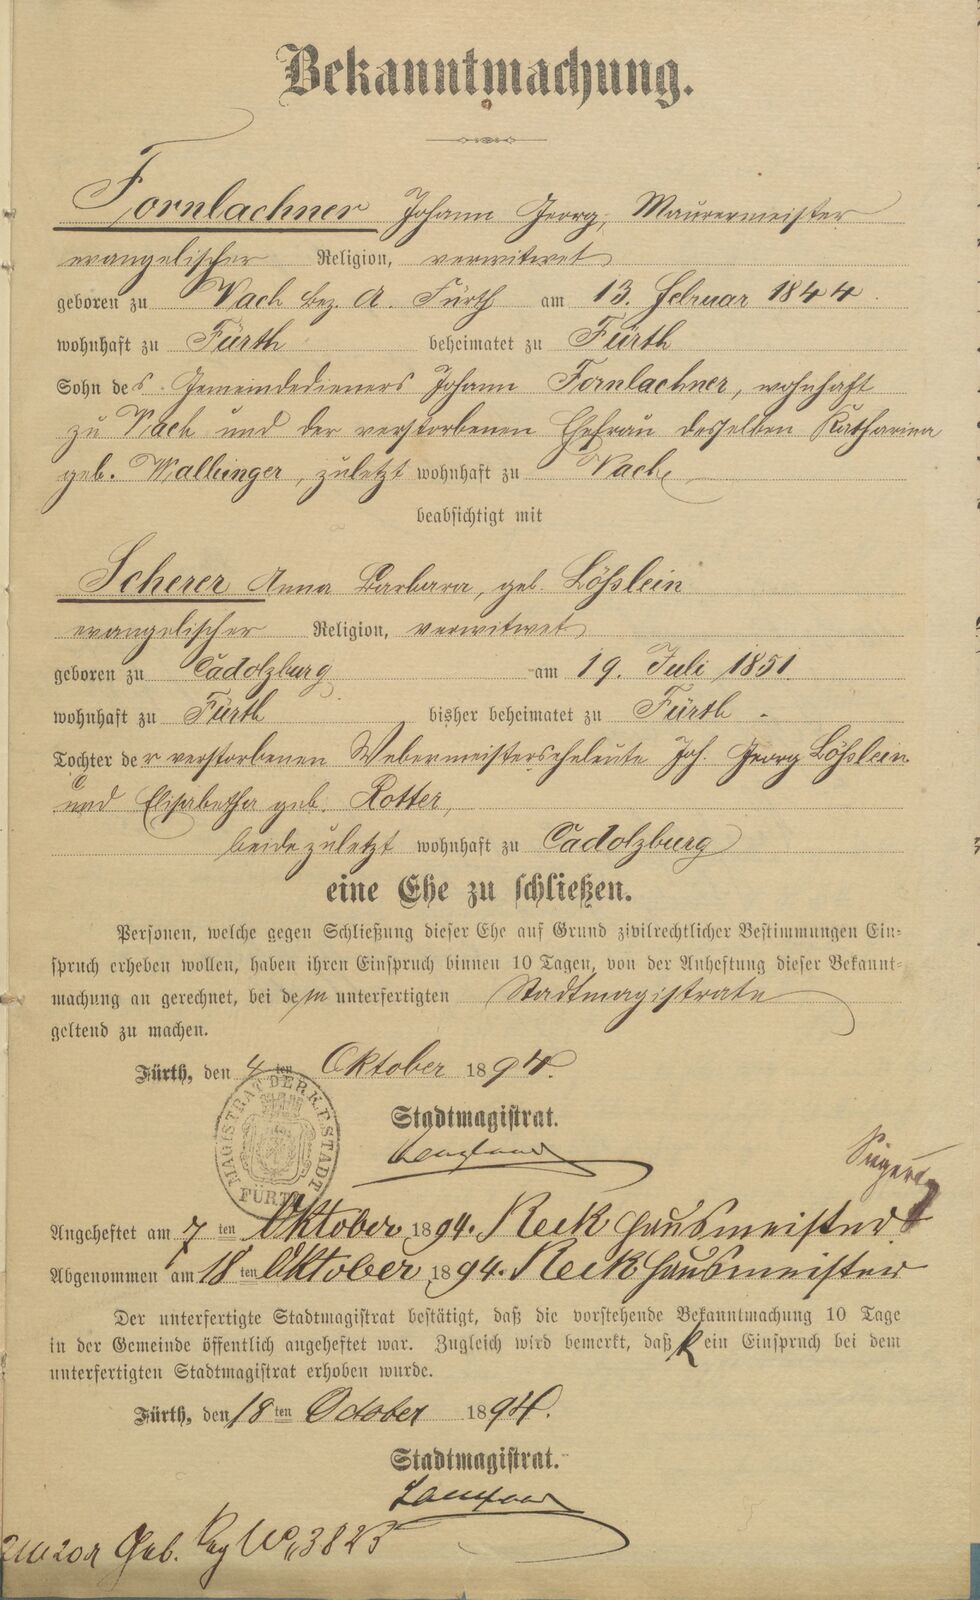 Bekanntmachung.
Fornlachner Johann Georg, Maurermeister
evangelischer Religion, verwitwet
geboren zu Vach Bez. A. Fürth am 13. Februar 1844
wohnhaft zu Fürth beheimatet zu Fürth
Sohn des Gemeindedieners Johann Fornlachner, wohnhaft
zu Vach und der verstorbenen Ehefrau desselben Katharina
geb. Wallinger, zuletzt wohnhaft zu Vach
beabsichtigt mit
Scherer Anna Barbara, geb. Lößlein
evangelischer Religion, verwitwet
geboren zu Cadolzburg am 19. Juli 1851.
wohnhaft zu Fürth bisher beheimatet zu Fürth.
Tochter der verstorbenen Webermeisterseheleute Joh. Georg Lößlein
und Elisabetha geb. Rotter,
beide zuletzt wohnhaft zu Cadolzburg
eine Ehe zu schließen.
Personen, welche gegen Schließung dieser Ehe auf Grund zivilrechtlicher Bestimmungen Ein-
spruch erheben wollen, haben ihren Einspruch binnen 10 Tagen, von der Anheftung dieser Bekannt-
machung an gerechnet, bei dem unterfertigten Stadtmagistrate
geltend zu machen.
Fürth, den 4ten Oktober 1894.
MAGISTRAT DER K. B. STADT FÜRTH
Stadtmagistrat.
Angeheftet am 7ten Oktober 1894. Reck Hausmeister
Abgenommen am 18ten Oktober 1894. Reck Hausmeister
Der unterfertigte Stadtmagistrat bestätigt, daß die vorstehende Bekanntmachung 10 Tage
in der Gemeinde öffentlich angeheftet war. Zugleich wird bemerkt, daß kein Einspruch bei dem
unterfertigten Stadtmagistrat erhoben wurde.
Fürth, den 18ten October 1894.
Stadtmagistrat.
Geb. Reg No 3825